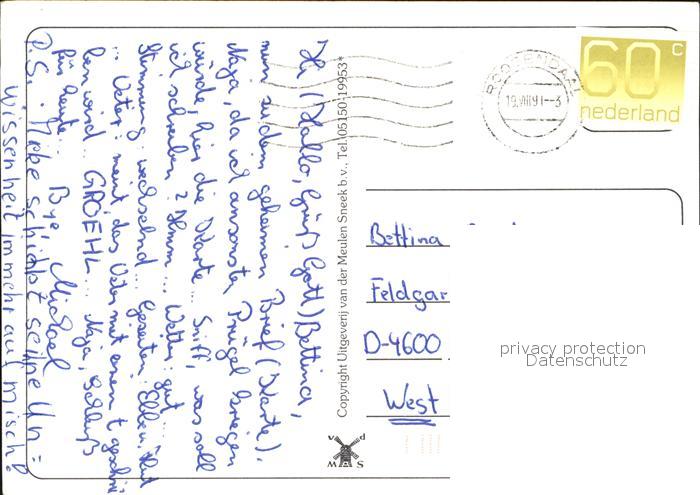 Hi (Hallo, Grüß Gott) Bettina,
nun zu dem geheimen Brief (Karte).
Naja, da ich ansonsten Prügel kriegen
würde, hier die Karte... Snift, was soll
ich schreiben? Hmm... Wetter: gut...
Stimmung: wechselnd... Gezeiten: Ebbe/Flut
... Vater: meint, das Vater mit einem t geschrie-
ben wird... GRÖEHL... Naja, Schluß
für heute...
Bye, Michael
P.S.: Mirko schiebt seine Un=
wissenheit immer auf mich!
Copyright Uitgeverij van der Meulen Sneek b.v. Tel. 05150-19953*
v d
MAS
ROOSENDAAL
19.VIII 91-3
60 c
nederland
Bettina
Feldgar
D-4600
West
privacy protection
Datenschutz